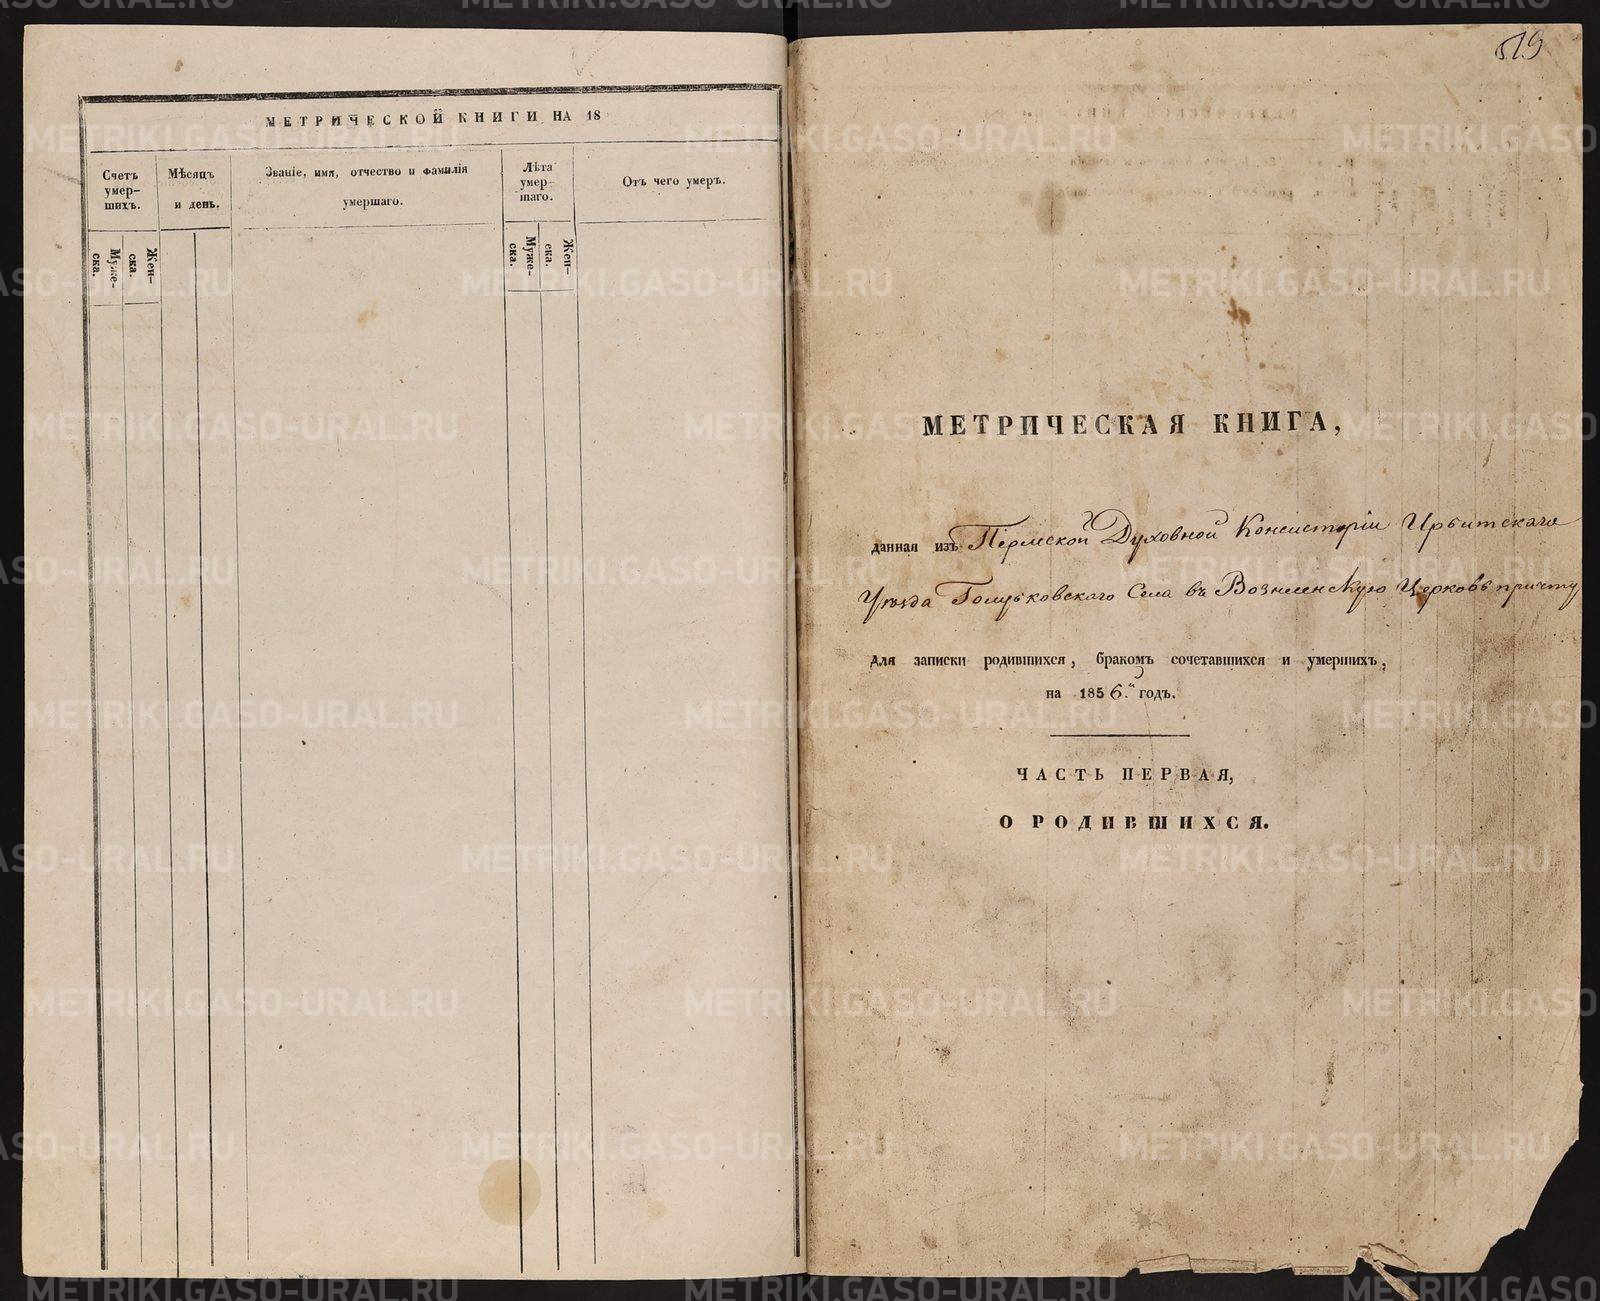 МЕТРИЧЕСКОЙ КНИГИ НА 18
Счетъ умер-шихъ.
Мѣсяцъ и день.
Званіе, имя, отчество и фамилія умершаго.
Лѣта умер-шаго.
Отъ чего умеръ.
Муже-ска.
Жен-ска.
Муже-ска.
Жен-ска.
519
МЕТРИЧЕСКАЯ КНИГА,
данная изъ Пермской Духовной Консисторіи Ирбитскаго
Уѣзда Голубковскаго Села въ Вознесенскую Церковь причту
для записки родившихся, бракомъ сочетавшихся и умершихъ,
на 1856.й годъ.
ЧАСТЬ ПЕРВАЯ,
О РОДИВШИХСЯ.
METRIKI.GASO-URAL.RU